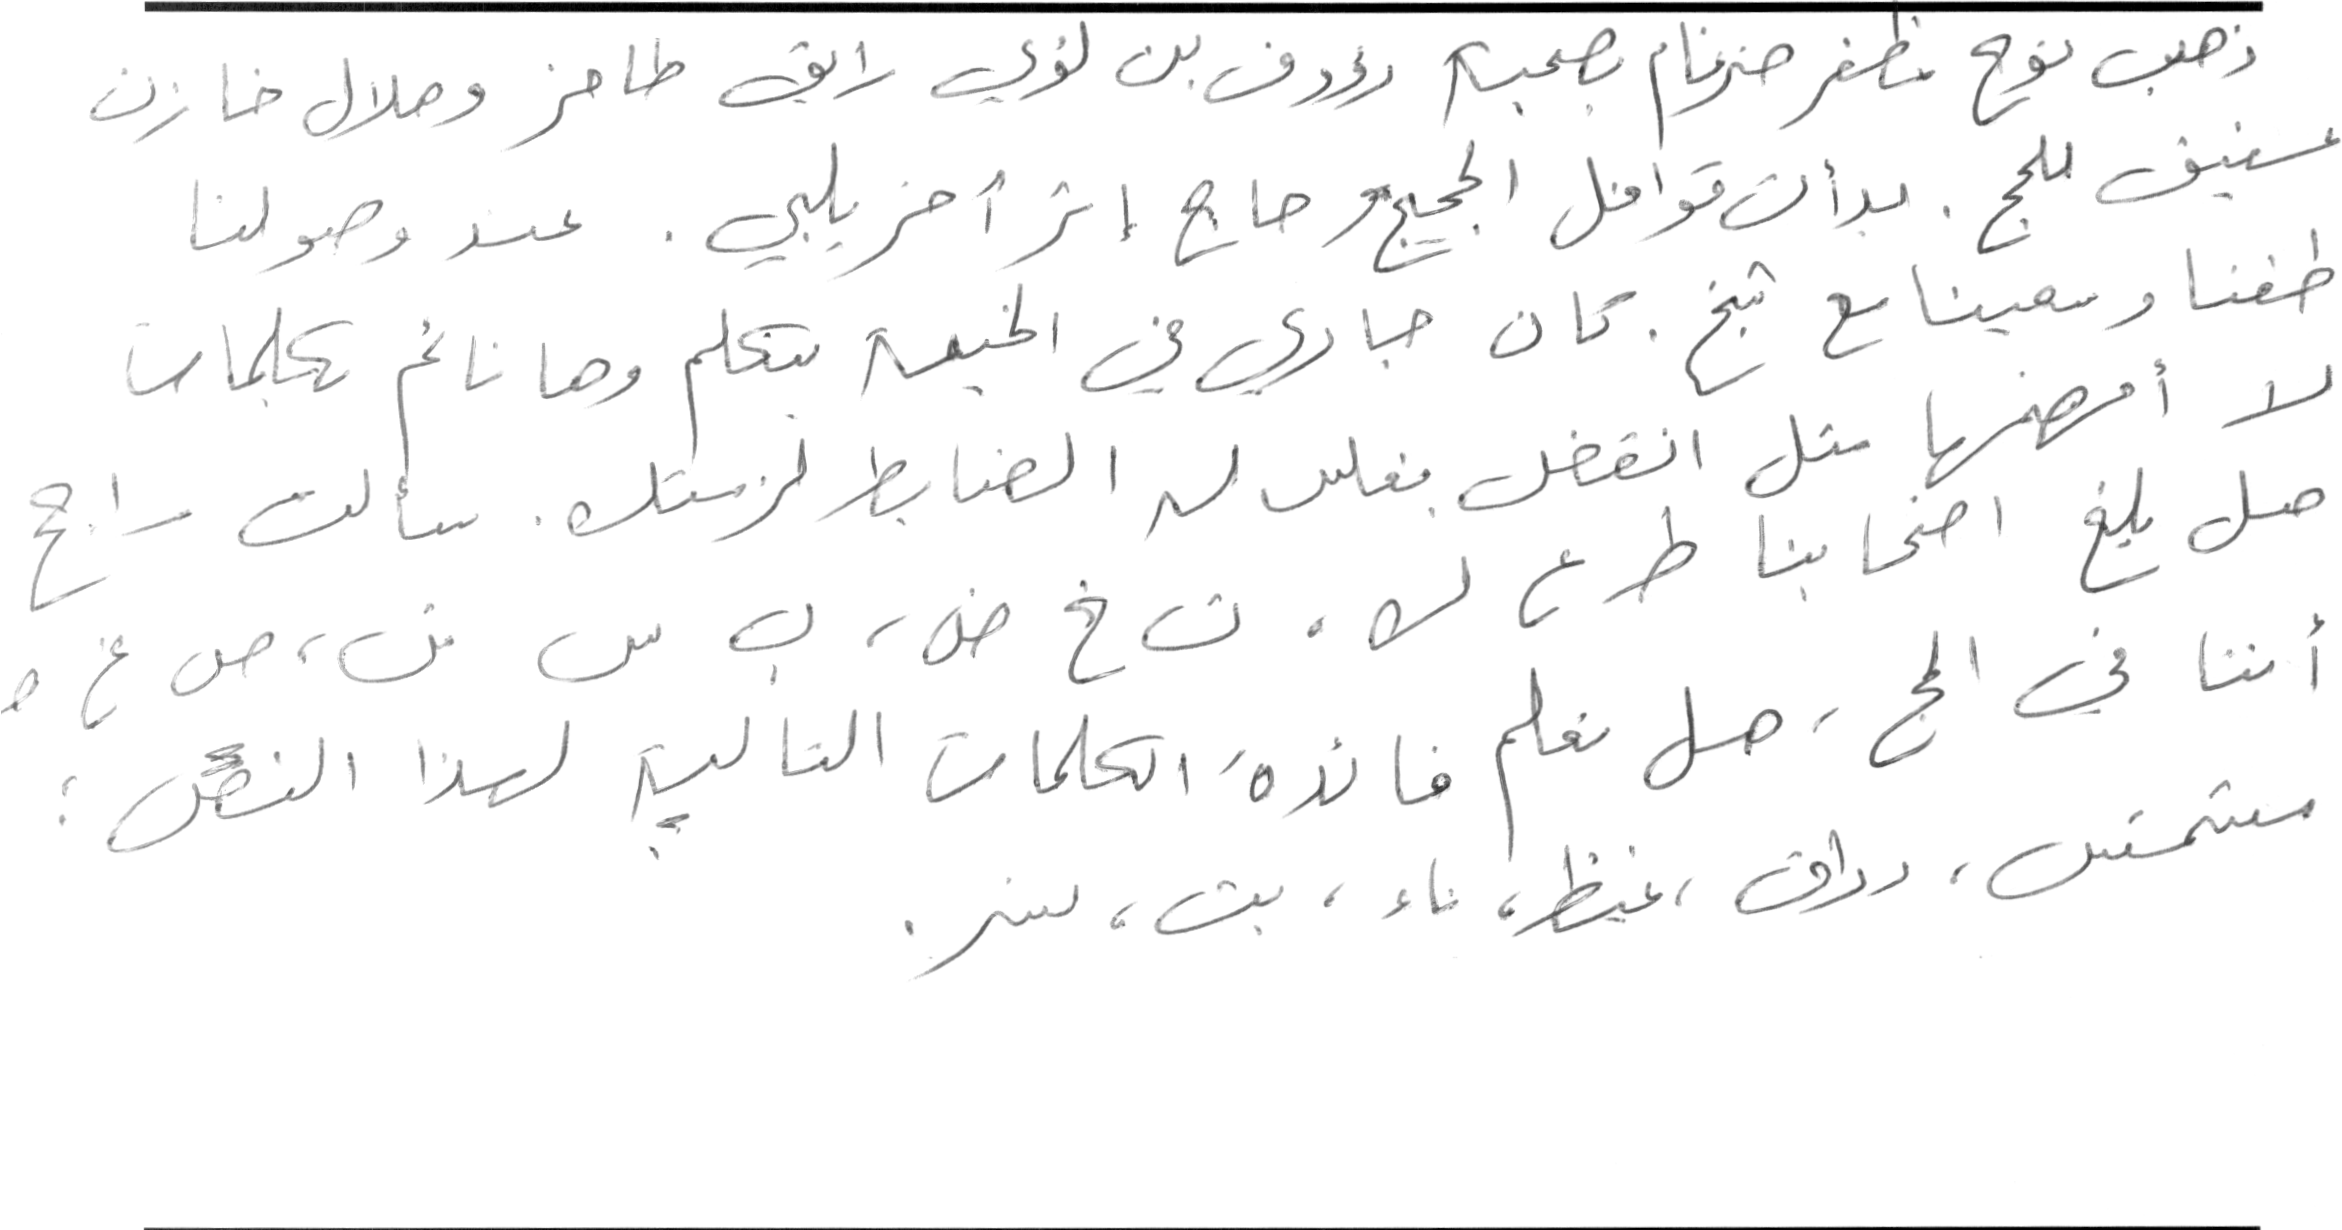 ذهب نوح مظفر ضرغام بصحبة رؤوف بن لؤي رايق ظافر وهلال خازن
عفيف للحج . بدأت قوافل الحجيج حاج إثر آخر يلبي . عند وصولنا
طفنا وسعينا مع شيخ . كان جاري في الخيمة يتكلم وها نائم بكلمات
لا أفهمها مثل انقض بغلس له الضابط لزمتك . سألت سراج
هل بلغ اصحابنا ط ع ك . ت خ ض ، ب س ش ، ص غ ه
أننا في الحج ، هل تعلم فائدة الكلمات التالية لهذا النص :
مشمش ، رواق ، غيظ ، ناء ، بت ، نسر .